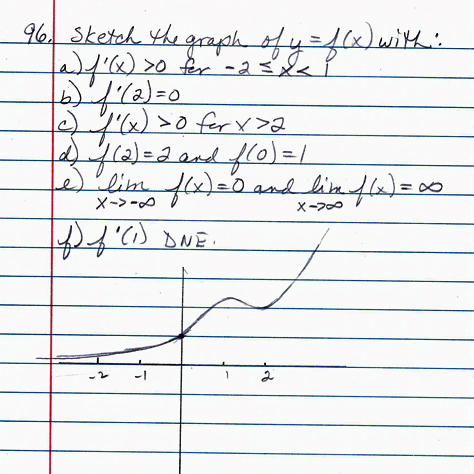 96. Sketch the graph of y = f(x) with:
a) f'(x) > 0 for -2 ≤ x < 1
b) f'(2) = 0
c) f'(x) > 0 for x > 2
d) f(2) = 2 and f(0) = 1
e) lim f(x) = 0 and lim f(x) = ∞
x→-∞ x→∞
f) f'(1) DNE.
-2 -1 1 2